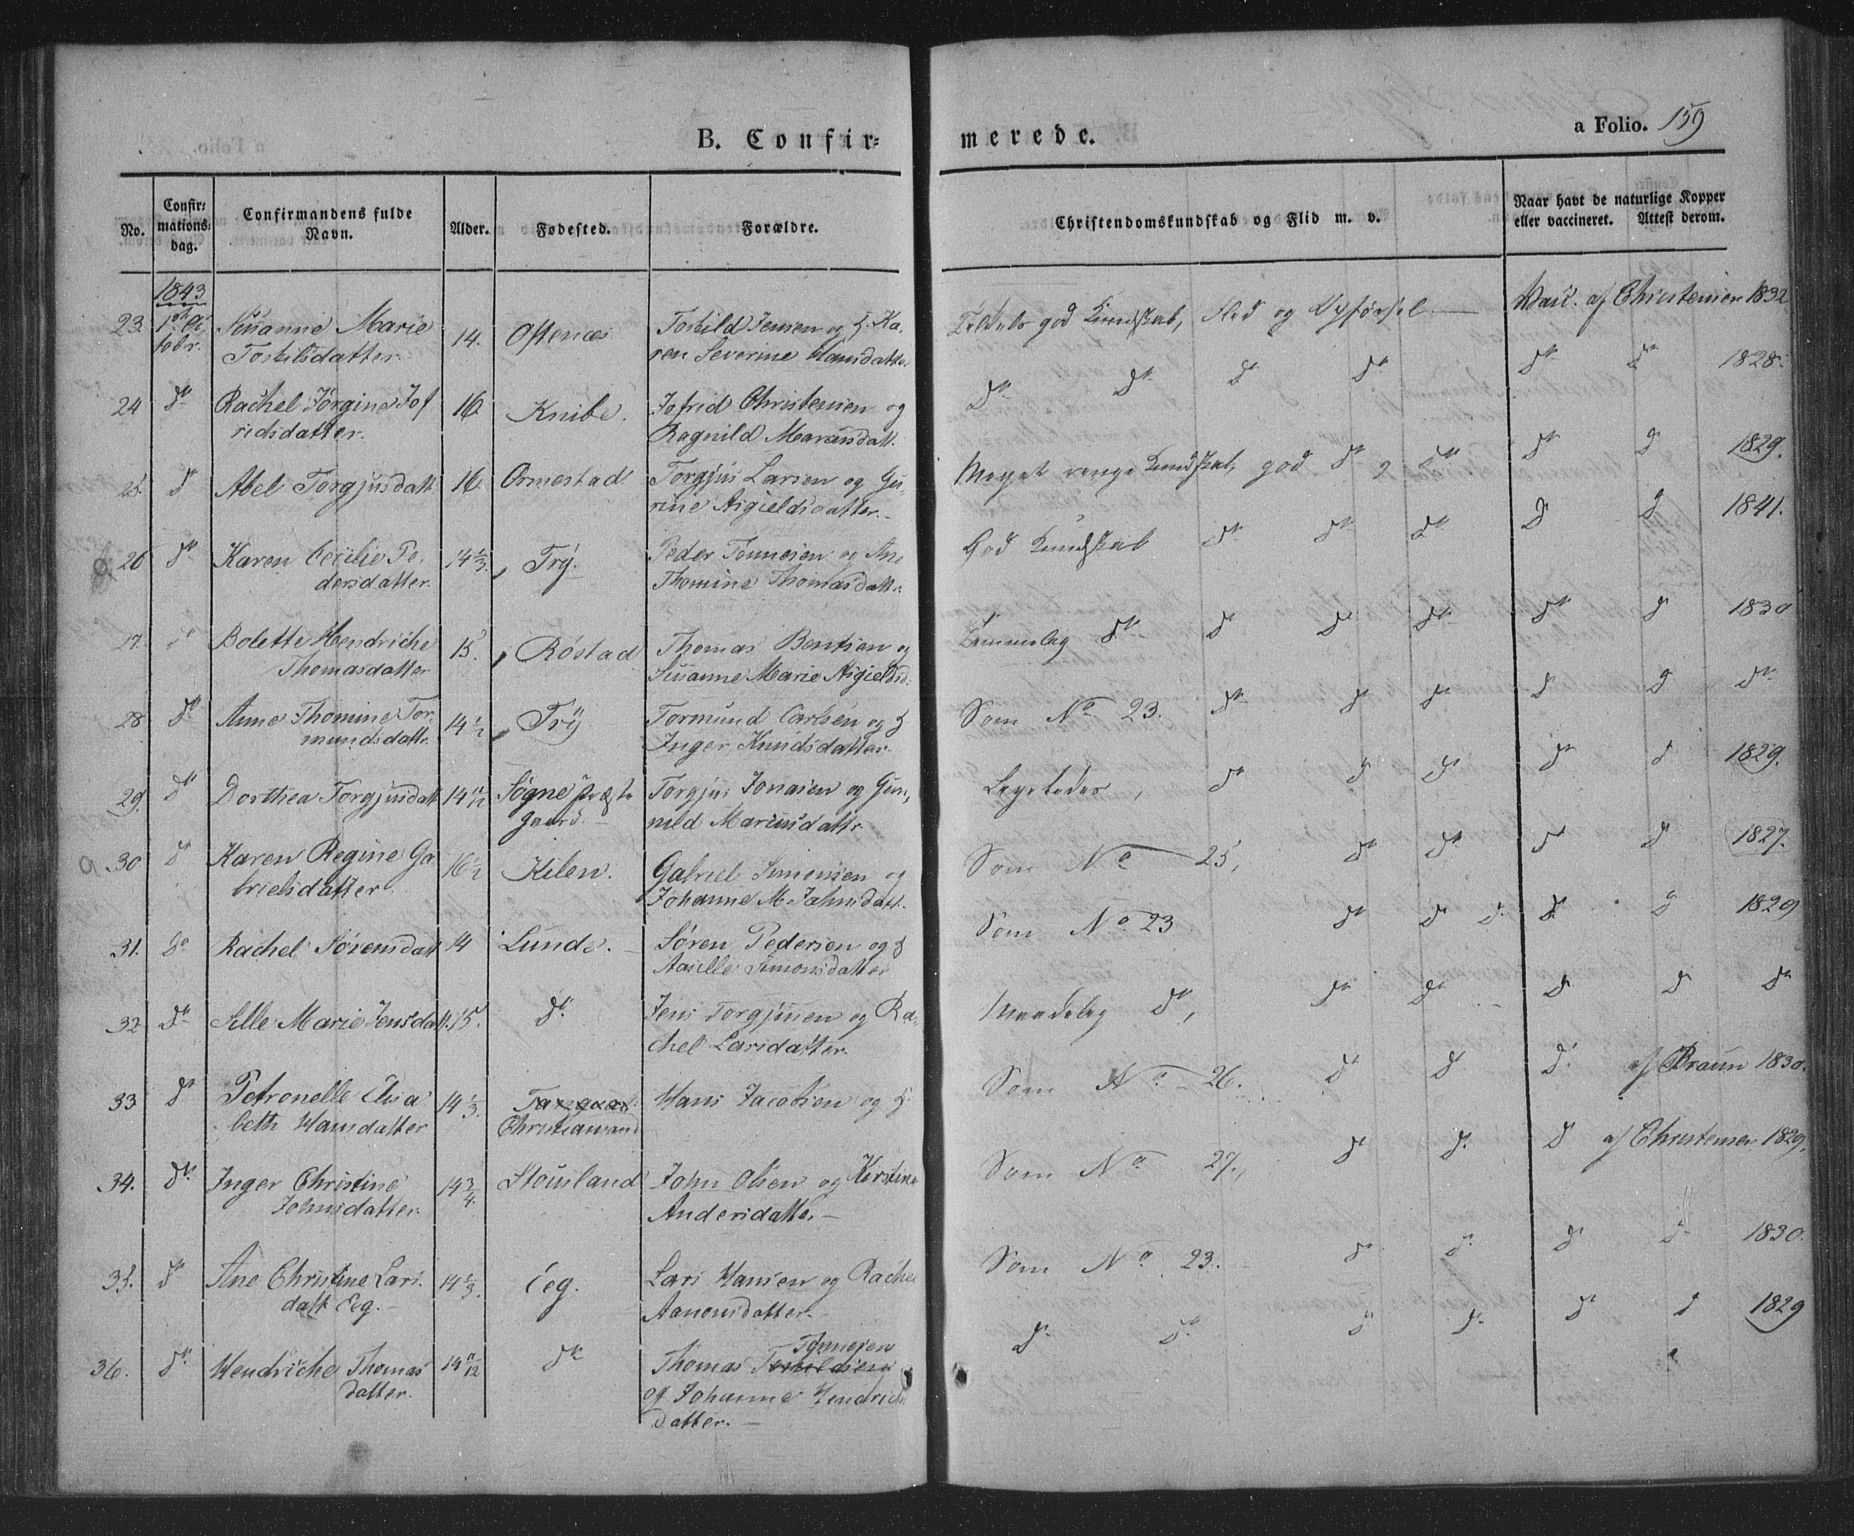 B. Confir=
merede.
a Folio. 159
No.
Confir=
mations=
dag.
Confirmandens fulde
Navn.
Alder.
Fødested.
Forældre.
Christendomskundskab og Flid m. v.
Naar havt de naturlige Kopper
eller vaccineret. Attest derom.
1843
23. 1ste Oc Susanne Marie 14. Oftenæs Torkild Jensen og H. Ka- Tildels god Kundskab, Flid og Opførsel Vacc. af Christensen 1832
tobr. Torkildsdatter ren Severine Hansdatter
24 do Rachel Jørgine Jof 16 Knibe. Jofrid Christensen og do do do do do do 1828.
ridsdatter. Ragnild Marcusdatt.
25. do Abel Torgjusdatt 16. Ormestad Torgjus Larsen og Gu- Meget ringe Kundskab, god do og do do do 1829.
rine Asgieldsdatter.
26 do Karen Cecilie Pe- 14 1/3. Try. Peder Tønnesen og Ane God Kundskab do do do do do 1841.
dersdatter. Thomine Thomasdattr.
27. do Bolette Hendriche 15. Røstad Thomas Bentsen og Temmelig do do do do do do 1830
Thomasdatter Susanne Marie Asgieldsd.
28. do Anne Thomine Tor- 14 1/2 Try Tormund Carlsen og H Som No 23. do do do do do do
mundsdattr. Inger Knudsdatter.
29. do Dorthea Torgjusdatt 14 11/12 Søgne Præste Torgjus Jonasen og Gun- Ligeledes, do do do do do 1829.
gaard. nild Marcusdattr.
30 do Karen Regine Ga 16 1/2 Kilen. Gabriel Simonsen og Som No 25, do do do do 1827.
brielsdatter Johanne M. Jahnsdatt.
31. do Rachel Sørensdatt 14 Lunde. Søren Pedersen og H Som No 23 do do do do do 1829
Aasille Simonsdatter
32 do Sille Marie Jensdatt. 15. do. Jens Torgjusen og Ra- Maadelig do, do do do do do
chel Larsdatter.
33 do Petronelle Elisa 14 1/3. Hans Jacobsen og H Som No 26. do do do. af Braun 1830.
beth Hansdatter Christiansand
34. do. Inger Christine 14 3/4. Stousland John Olsen og Kirstine Som No 27, do do do af Christensen 1829.
Johnsdatter. Andersdatter.
35. do Ane Christine Lars- 14 1/3. Eeg. Lars Hansen og Rachel Som No 23. do do do do 1830.
datt Eeg. Aanonsdatter.
Tønnesen
36. do Hendriche Thomas 14 11/12 do Thomas Torkildsen do do do do do do 1829
datter. og Johanne Hendrichs
datter.